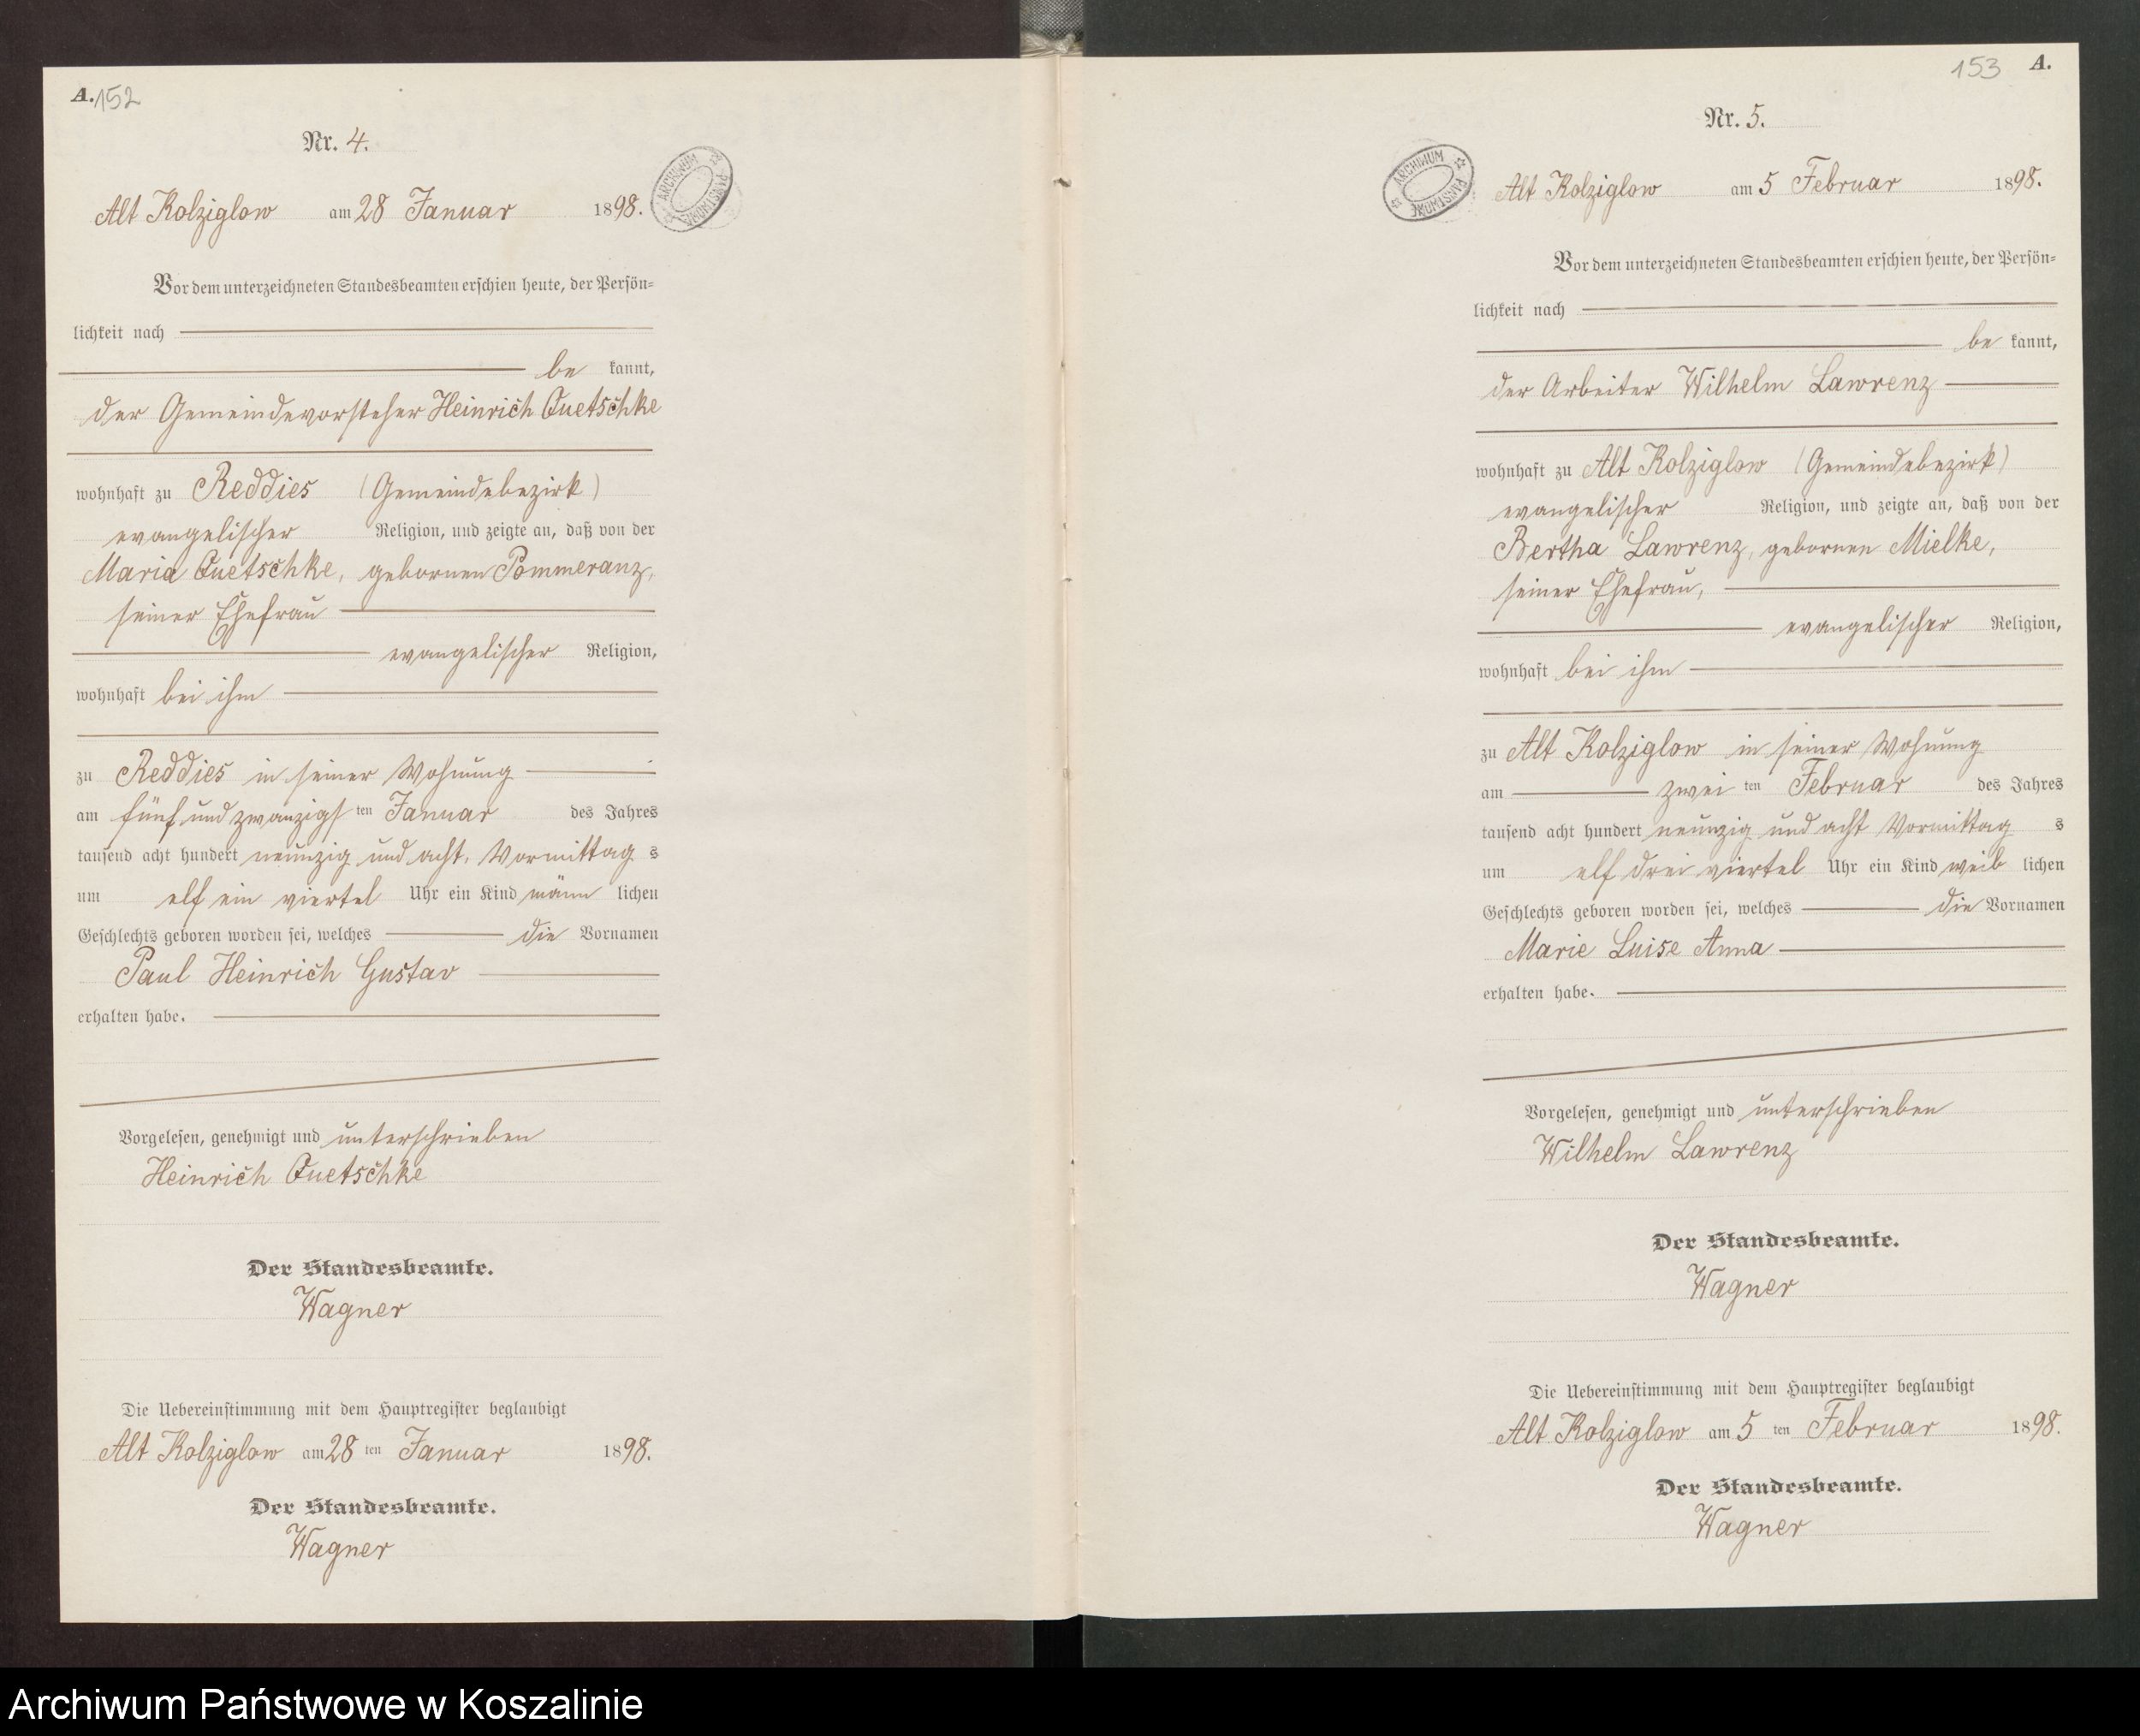 A. 152
Nr. 4.
Alt Kolziglow am 28 Januar 1898.
ARCHIWUM PAŃSTWOWE
Vor dem unterzeichneten Standesbeamten erschien heute, der Persön=
lichkeit nach
be kannt,
der Gemeindevorsteher Heinrich Quetschke
wohnhaft zu Reddies (Gemeindebezirk)
evangelischer Religion, und zeigte an, daß von der
Maria Quetschke, gebornen Pommeranz,
seiner Ehefrau
evangelischer Religion,
wohnhaft bei ihm
zu Reddies in seiner Wohnung
am fünf und zwanzigst ten Januar des Jahres
tausend acht hundert neunzig und acht, Vormittag s
um elf ein viertel Uhr ein Kind männ lichen
Geschlechts geboren worden sei, welches die Vornamen
Paul Heinrich Gustav
erhalten habe.
Vorgelesen, genehmigt und unterschrieben
Heinrich Quetschke
Der Standesbeamte.
Wagner
Die Uebereinstimmung mit dem Hauptregister beglaubigt
Alt Kolziglow am 28 ten Januar 1898.
Der Standesbeamte.
Wagner
153 A.
Nr. 5.
ARCHIWUM PAŃSTWOWE
Alt Kolziglow am 5 Februar 1898.
Vor dem unterzeichneten Standesbeamten erschien heute, der Persön=
lichkeit nach
be kannt,
der Arbeiter Wilhelm Lawrenz
wohnhaft zu Alt Kolziglow (Gemeindebezirk)
evangelischer Religion, und zeigte an, daß von der
Bertha Lawrenz, gebornen Mielke,
seiner Ehefrau,
evangelischer Religion,
wohnhaft bei ihm
zu Alt Kolziglow in seiner Wohnung
am zwei ten Februar des Jahres
tausend acht hundert neunzig und acht Vormittag s
um elf drei viertel Uhr ein Kind weib lichen
Geschlechts geboren worden sei, welches die Vornamen
Marie Luise Anna
erhalten habe.
Vorgelesen, genehmigt und unterschrieben
Wilhelm Lawrenz
Der Standesbeamte.
Wagner
Die Uebereinstimmung mit dem Hauptregister beglaubigt
Alt Kolziglow am 5 ten Februar 1898.
Der Standesbeamte.
Wagner
Archiwum Państwowe w Koszalinie